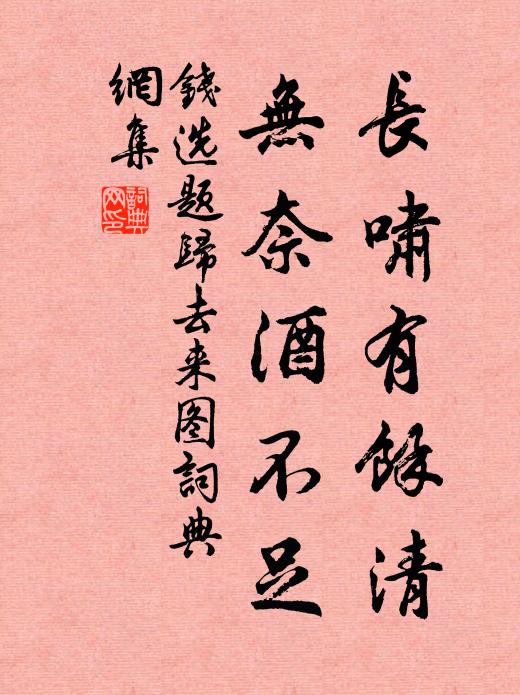 長嘯有餘清
無奈酒不足
錢选题歸去来图詞典
網集
詞典
网印